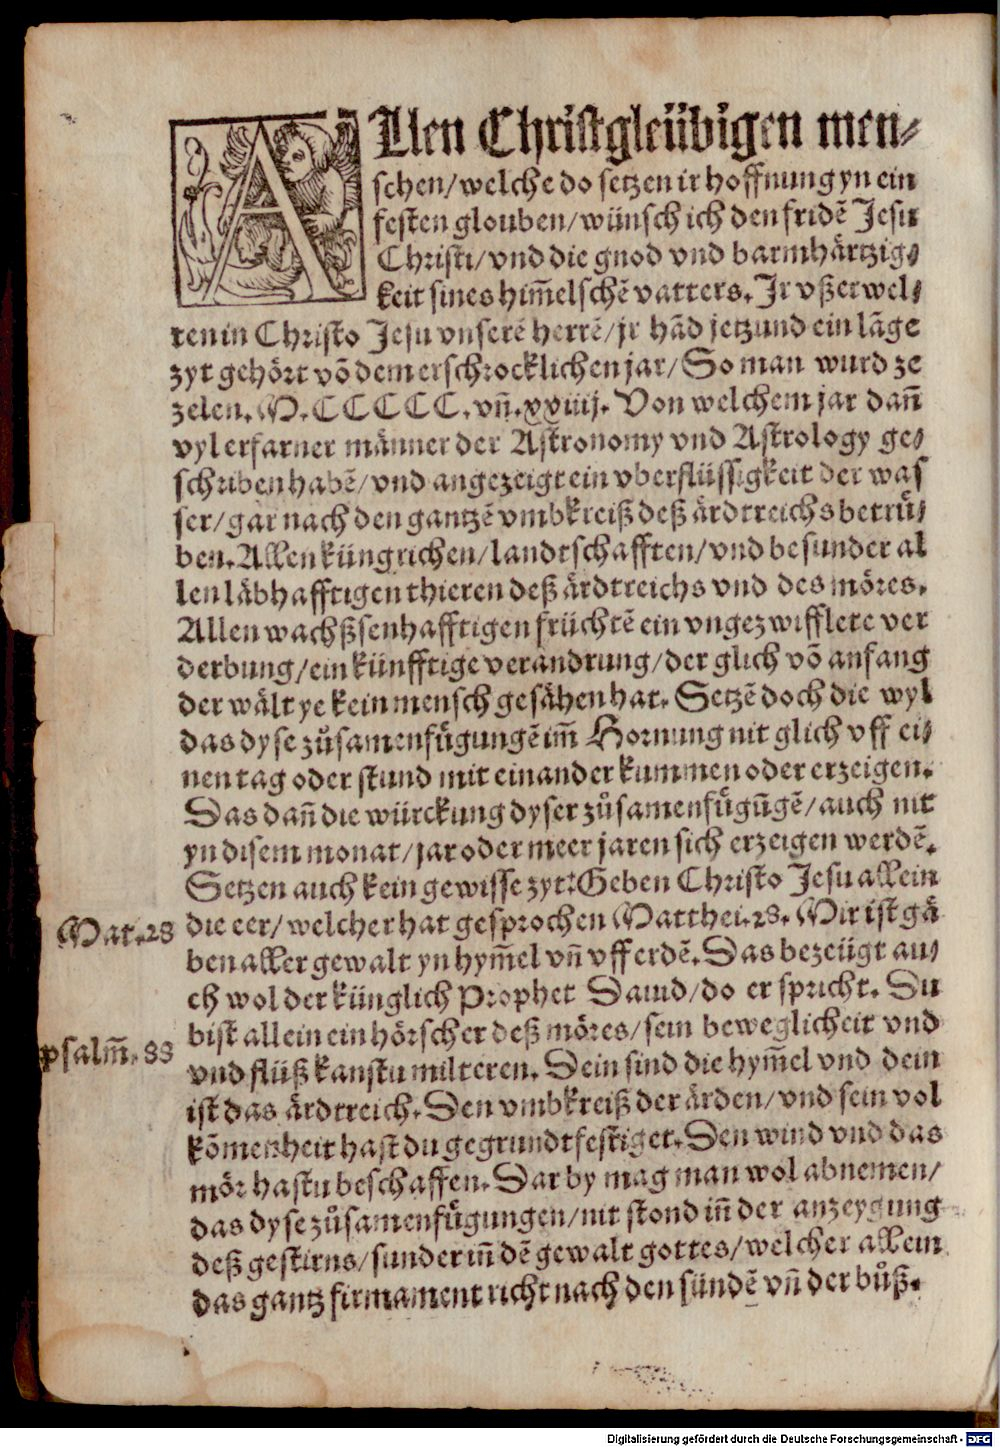 ALlen Christgleübigen men⸗
schen/welche do setzen ir hoffnung yn ein
festen glouben/wünsch ich den fridē Jesu
Christi/vnd die gnod vnd barmhärtzig⸗
keit sines him̄elschē vatters. Ir vßerwel⸗
ten in Christo Jesu vnserē herrē/jr hād jetzund ein lāge
zyt gehört vō dem erschrocklichen jar/So man wurd ze
zelen. M. CCCCC. vn̄. xxiiij. Von welchem jar dan̄
vyl erfarner männer der Astronomy vnd Astrology ge⸗
schriben habē/vnd angezeigt ein vberflüssigkeit der was
ser/gar nach den gantzē vmbkreiß deß ärdtreichs betrü⸗
ben. Allen küngrichen/landtschafften/vnd besunder al
len läbhafftigen thieren deß ärdtreichs vnd des möres.
Allen wachßsenhafftigen früchtē ein vngezwifflete ver
derbung/ein künfftige verandrung/der glich vō anfang
der wält ye kein mensch gesähen hat. Setzē doch die wyl
das dyse zůsamenfügungē im̄ Hornung nit glich vff ei⸗
nen tag oder stund mit einander kummen oder erzeigen.
Das dan̄ die würckung dyser zůsamenfügūgē/auch nit
yn disem monat/jar oder meer jaren sich erzeigen werdē.
Setzen auch kein gewisse zyt: Geben Christo Jesu allein
die eer/welcher hat gesprochen Matthei. 28. Mir ist gä
ben aller gewalt yn hym̄el vn̄ vff erdē. Das bezeügt au⸗
ch wol der künglich Prophet Dauid/do er spricht. Du
bist allein ein hörscher deß möres/sein beweglicheit vnd
vnd flüß kanstu milteren. Dein sind die hym̄el vnd dein
ist das ärdtreich. Den vmbkreiß der ärden/vnd sein vol
kōmenheit hast du gegrundtfestiget. Den wind vnd das
mör hastu beschaffen. Dar by mag man wol abnemen/
das dyse zůsamenfügungen/nit stond in̄ der anzeygung
deß gestirns/sunder in̄ dē gewalt gottes/welcher allein
das gantz firmament richt nach den sündē vn̄ der bůß.
Mat. 28
psalm̄. 88
Digitalisierung gefördert durch die Deutsche Forschungsgemeinschaft - DFG